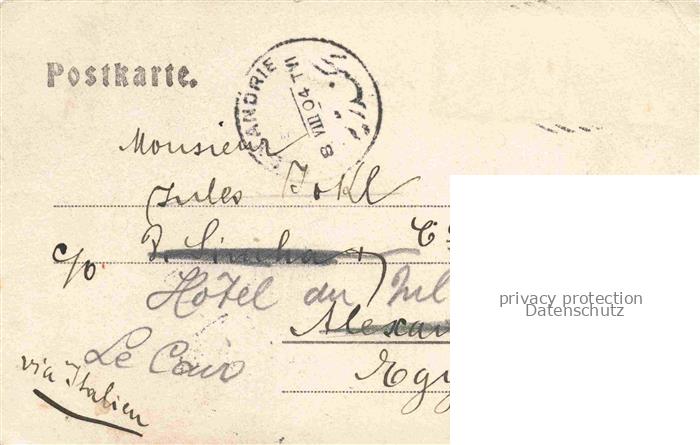 Postkarte.
ANDRIE
8 VIII 04 T VI
Monsieur
Jules Jokl
c/o B. Simha + C
Hôtel du Nil
Alexan
Le Caire
Egy
via Italien
privacy protection
Datenschutz